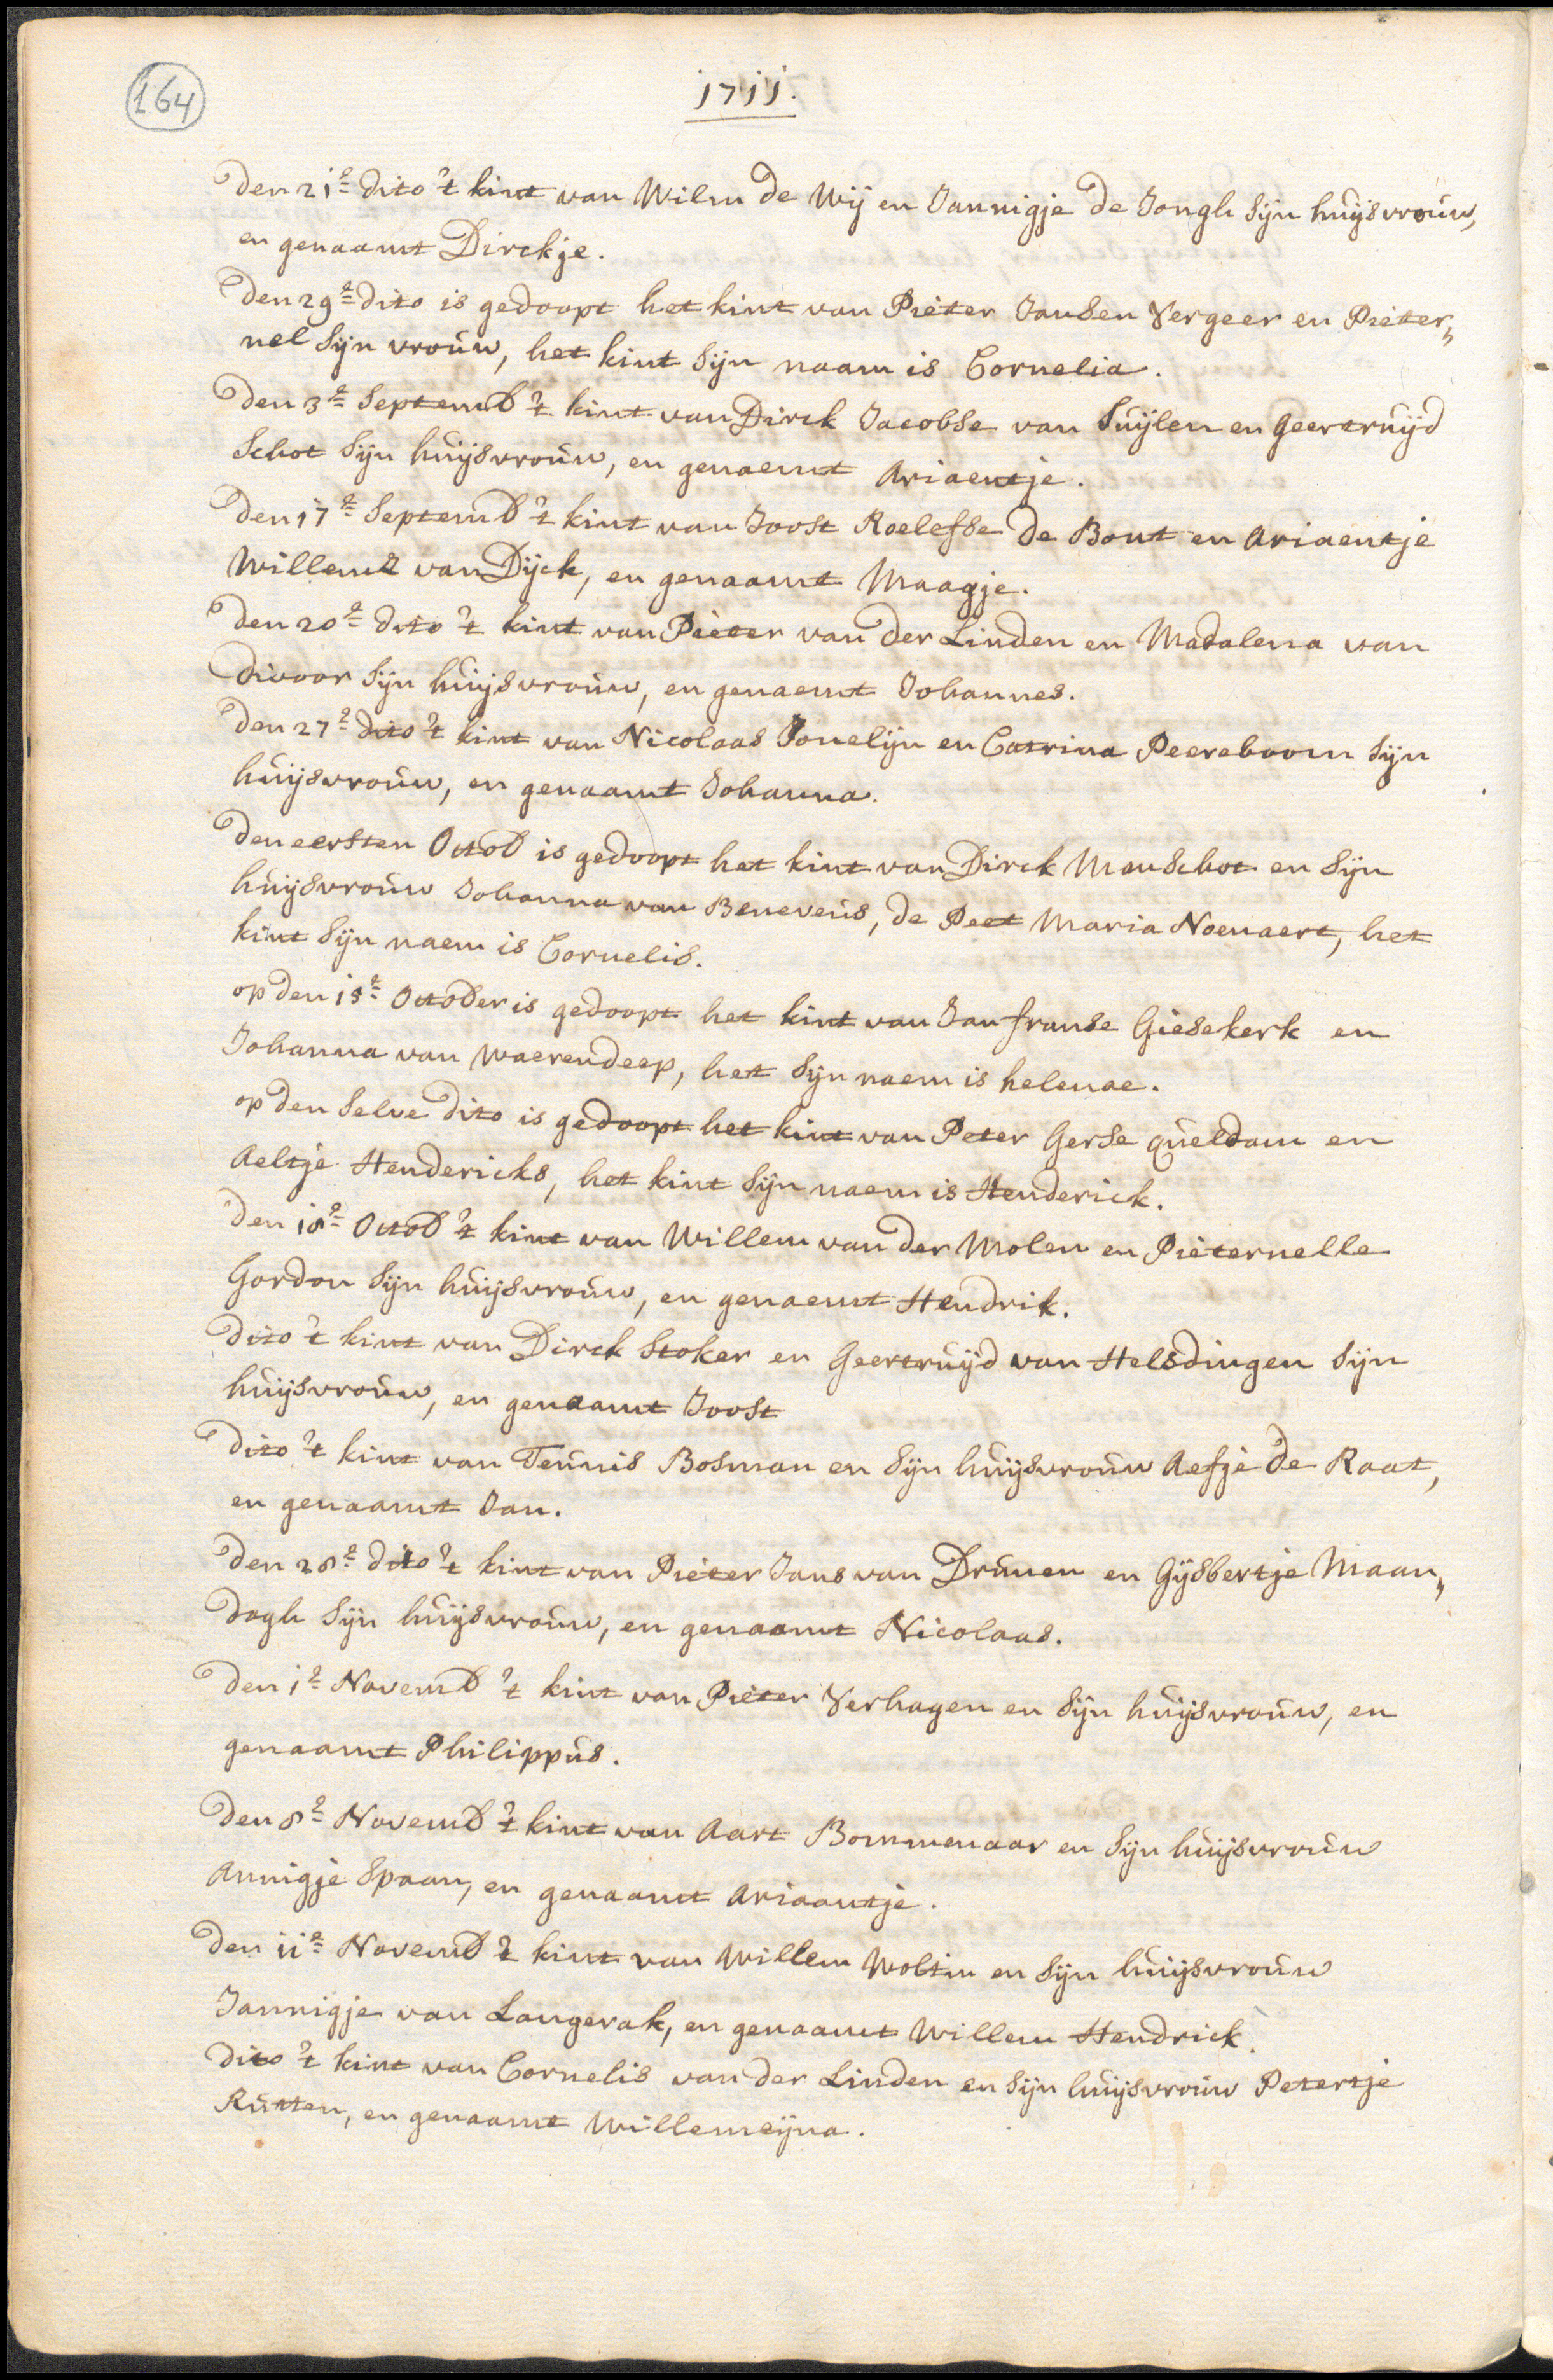 164
1711.
Den 21e dito 't kint van Wilm de Wij en Jannigje de Jongh sijn huijsvrouw,
en genaamt Dirckje.
Den 29e dito is gedoopt het kint van Pieter Jansen Vergeer en Pieter„
nel sijn vrouw, het kint sijn naam is Cornelia.
Den 3e Septemb 't kint van Dirck Jacobse van Suijlen en Geertruijd
Schot sijn huijsvrouw, en genaemt Ariaentje.
Den 17e Septemb 't kint van Joost Roelefse de Bout en Ariaentje
Willems van Dijck, en genaamt Maagje.
Den 20e dito 't kint van Pieter van der Linden en Madalena van
Divoor sijn huijsvrouw, en genaemt Johannes.
Den 27e dito 't kint van Nicolaas Jonelijn en Catrina Peereboom sijn
huijsvrouw, en genaamt Johanna.
Den eersten Octob is gedoopt het kint van Dirck Manschot en sijn
huijsvrouw Johanna van Benevens, de Peet Maria Noenaert, het
kint sijn naem is Cornelis.
op den 15e October is gedoopt het kint van Jan franse Giesekerk en
Johanna van Waerendeep, het sijn naem is helenae.
op den selve dito is gedoopt het kint van Peter Gerse Queldam en
Aeltje Hendericks, het kint sijn naem is Henderick.
Den 18e Octob 't kint van Willem van der Molen en Pieternelle
Gordon sijn huijsvrouw, en genaemt Hendrik.
Dito 't kint van Dirck Stoker en Geertruijd van Helsdingen sijn
huijsvrouw, en genaamt Joost
Dito 't kint van Teunis Bosman en sijn huijsvrouw Aefje de Raat,
en genaamt Jan.
Den 28e dito 't kint van Pieter Jans van Drunen en Gijsbertje Maan„
dagh sijn huijsvrouw, en genaamt Nicolaas.
Den 1e Novemb 't kint van Pieter Verhagen en sijn huijsvrouw, en
genaamt Philippus.
Den 8e Novemb 't kint van Aart Bommenaar en sijn huijsvrouw
Annigje Spaan, en genaamt Ariaantje.
Den 11e Novemb 't kint van Willem Woltm en sijn huijsvrouw
Jannigje van Langerak, en genaamt Willem Hendrick.
Dito 't kint van Cornelis van der Linden en sijn huijsvrouw Petertje
Rutten, en genaamt Willemeijna.